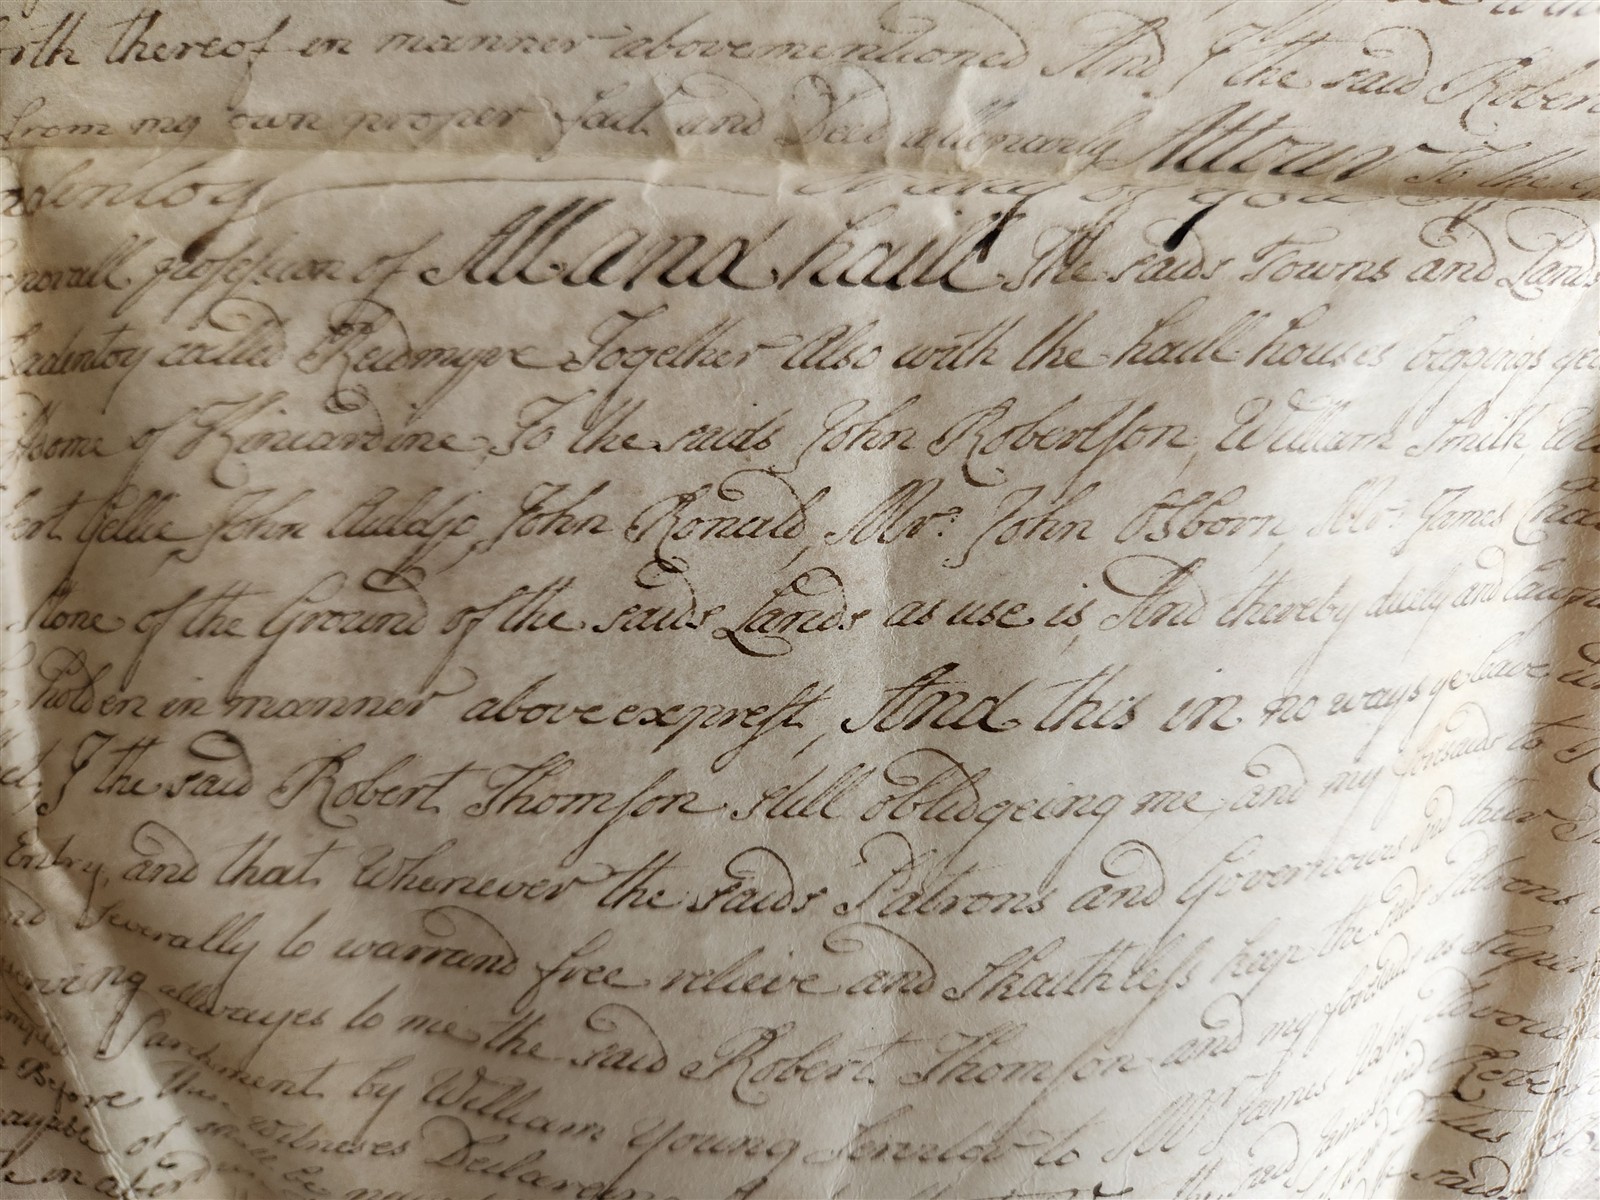 thereof in manner abovementioned And I the said Rober
from my own proper fact and Deed allenarly Attour To the
dentoy
possession of All and haill The saids Towns and Lands
adentoy called Reidmyre Together Also with the haill houses biggings
of Kincardine, To the saids John Robertson, William Smith,
ert Gellie John Auldjo, John Ronald, Mr. John Osborn, Mr. James
stone of the Ground of the saids Lands as use is, And thereby duely and
holden in manner above exprest, And this in no ways ye leave
I the said Robert Thomson still oblidgeing me and my forsaids to
Entry, and that whenever the saids Patrons and Governours and their
severally to warrand free relieve and skaithless keep the saids Patrons
allwayes to me the said Robert Thomson and my forsaids as Super
Parchment by William Young Servitor to Mr. James
Before these Witnesses Declareing